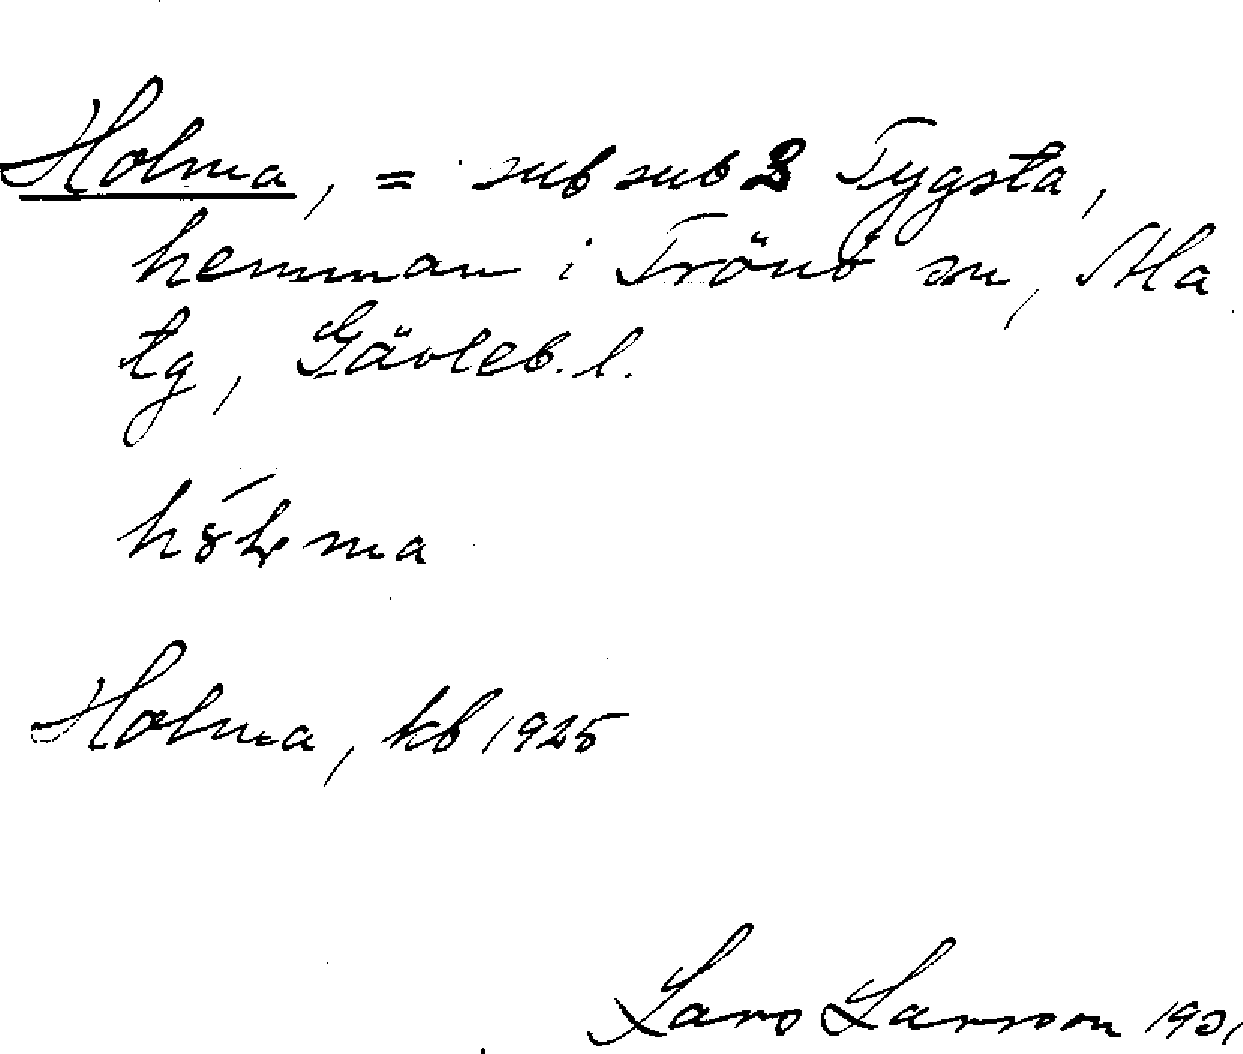 Holma, = sub sub 3 Tygsta,
hemman i Trönö sn, Ala
tg, Gävleb. l.
Holma, kb 1925
Lars Larsson